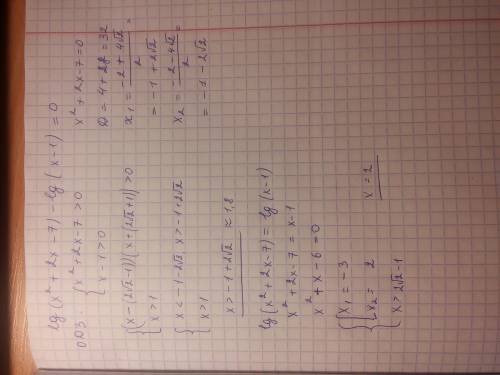 lg(x² + 2x - 7) - lg(x - 1) = 0
ОДЗ.
{ x² + 2x - 7 > 0
x - 1 > 0
x² + 2x - 7 = 0
D = 4 + 28 = 32
x₁ = (-2 + 4√2)/2 =
= -1 + 2√2
x₂ = (-2 - 4√2)/2 =
= -1 - 2√2
{ (x - (2√2 - 1))(x + (2√2 + 1)) > 0
x > 1
{ x < -1 - 2√2, x > -1 + 2√2
x > 1
x > -1 + 2√2 ≈ 1,8
lg(x² + 2x - 7) = lg(x - 1)
x² + 2x - 7 = x - 1
x² + x - 6 = 0
{ [ x₁ = -3
x₂ = 2
x > 2√2 - 1
x = 2